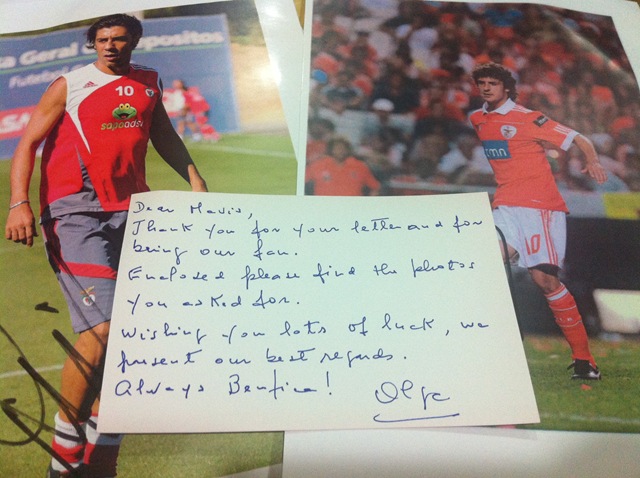 Geral de Depositos
Futebol
SAG
10
sapo adsl
tmn
10
Dear Mavis,
Thank you for your letter and for
being our fan.
Enclosed please find the photos
you asked for.
Wishing you lots of luck, we
present our best regards.
Always Benfica!
Olga